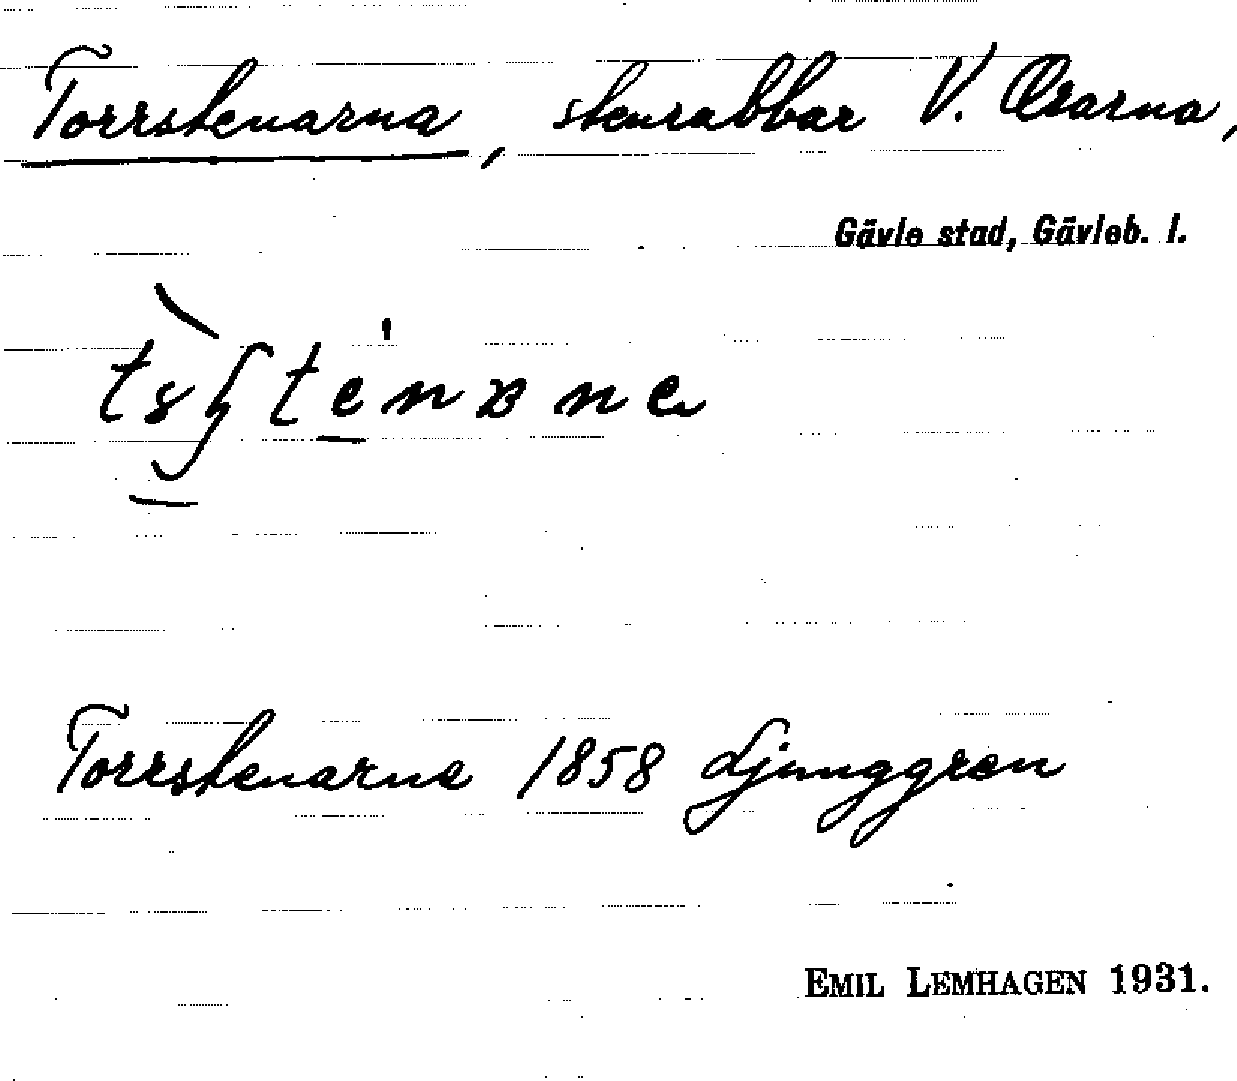 Torrstenarna, stensrabbar V. Œsarna,
Gävle stad, Gävleb. l.
Torrstenarne 1858 Ljunggren
EMIL LEMHAGEN 1931.